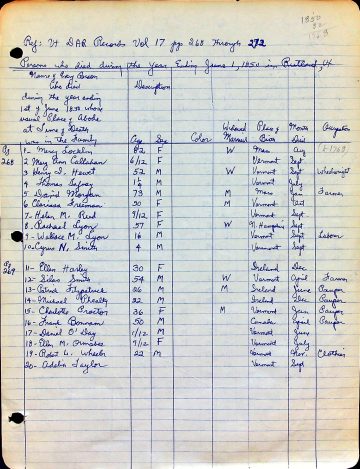 1850
Ref: Vt DAR Records Vol 17 pg 268 through 272
Persons who died during the Year Ending June 1, 1850 in Rutland, Vt
Name of Every Person who died during the year ending 1st of June 1850 whose usual Place of Abode at Time of Death was in the Family
Description
Age Sex Color Widowed Married Place of Birth Month Died Occupation
Pg 268
1- Mercy 82 F W Mass Aug
2- Mary Ann Callahan 6/12 F Vermont Sept
3- Henry I. Hewit 52 M W Vermont Sept Wheelwright
4- Thomas 1½ M Vermont July
5- David Morgan 73 M M Mass Jan Farmer
6- Clarissa Freeman 30 F M Vermont Jan
7- Helen M. Reed 9/12 F Vermont Sept
8- Rachael Lyon 57 F W N. Hampshire Sept
9- Wallace M. Lyon 16 M Vermont Sept Labor
10- Cyrus N. Smith 4 M Vermont Sept
Pg 269
11- Ellen Harley 30 F Ireland Dec
12- Silas Smith 54 M W Vermont April Farmer
13- Patrick Fitzpatrick 26 M M Ireland June Pauper
14- Michael 22 M Ireland Dec Pauper
15- Charlotte Proctor 36 F M Vermont Jan Pauper
16- Frank 50 M Canada April Pauper
17- Daniel O'Day 1/12 M Vermont June
18- Ellen M. Ormsbee 7/12 F Vermont July
19- Robt L. Wheeler 22 M Vermont Nov. Clothier
20- Adelia Taylor Vermont Sept